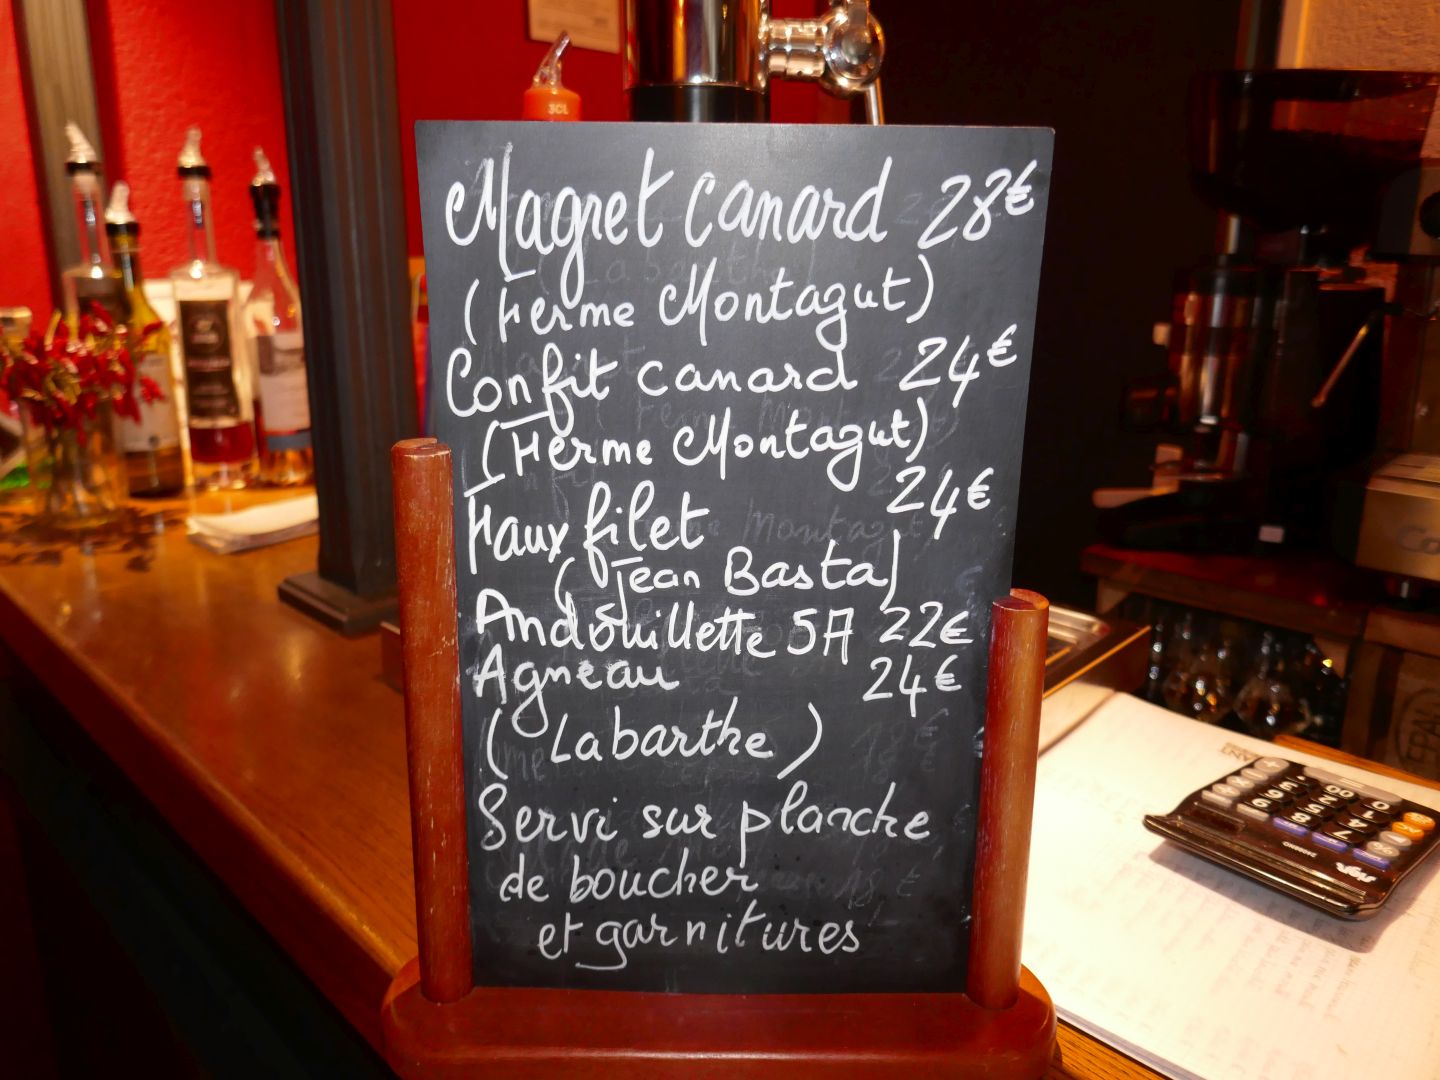 3CL
Magret canard 28€
(Ferme Montagut)
Confit canard 24€
(Ferme Montagut)
Faux filet 24€
(Jean Basta)
Andouillette 5A 22€
Agneau 24€
(Labarthe)
Servi sur planche
de boucher
et garnitures